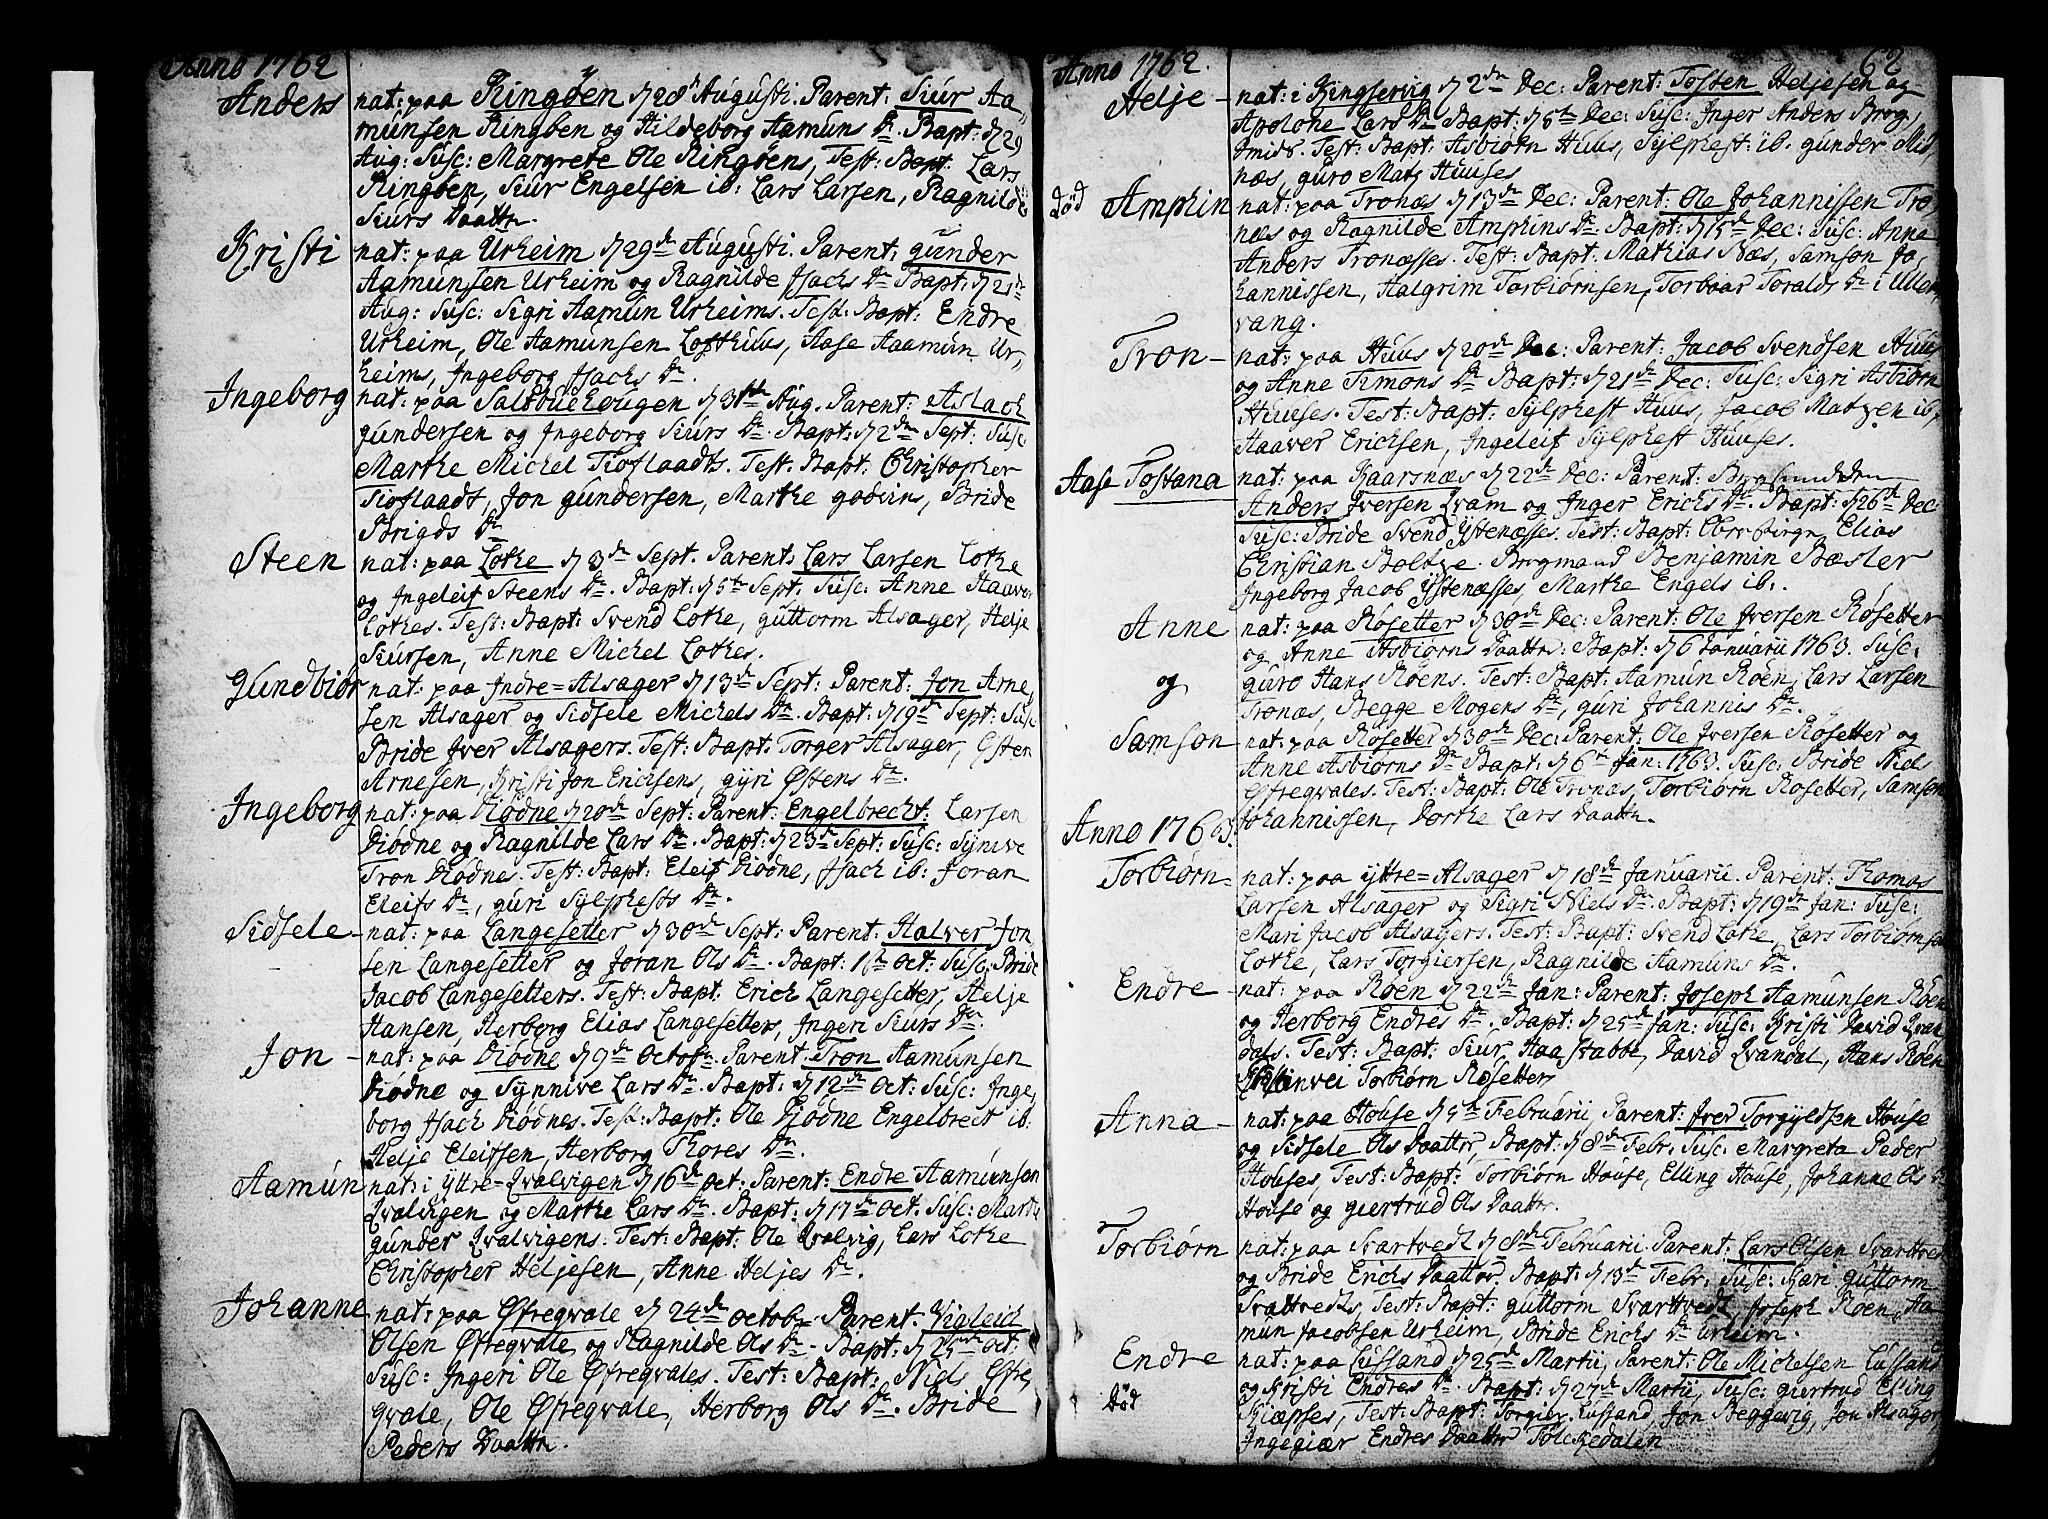 Anno 1762
Anders nat: paa Ringøen d 28 Augusti. Parent: Siur Aa-
munsen Ringøen og Hildeborg Aamuns Dr. Bapt: d 29
Aug: Susc: Margrete Ole Ringøens, Test: Bapt: Lars
Ringøen, Siur Engelsen ib: Lars Larsen, Ragnilde
Siurs Daattr.
Kristi nat: paa Urheim d 29de Augusti. Parent: Gunder
Aamunsen Urheim og Ragnilde Isachs Dr Bapt:
Aug: Susc: Sigri Aamun Urheims. Test: Bapt: Endre
Urheim, Ole Aamunsen Lofthuus, Aase Aaamun Ur-
heims, Ingeborg Isachs Dr.
Ingeborg nat: paa d 31te Aug. Parent: Aslach
Gundersen og Ingeborg Siurs Dr. Bapt: d 2den Sept: Susc:
Marthe Michel Tioflaadts. Test: Bapt: Christopher
Tioflaadt, Jon Gundersen, Marthe Bride
Brigds Dr
Steen nat: paa Lothe d 3de Sept. Parent: Lars Larsen Lothe
og Ingeleif Steens Dr. Bapt: d 5te Sept. Susc: Anne Haaver
Lothes. Test: Bapt: Svend Lothe, Guttorm Alsager, Helje
Siursen, Anne Michel Lothes.
Gundbiør nat: paa Indre=Alsager d 13de Sept: Parent: Jon Arne-
sen Alsager og Sidsele Michels Dr. Bapt: d 19de Sept: Susc:
Bride Iver Alsagers. Test: Bapt: Torger Alsager, Østen
Arnesen, Kristi Jon Ericksens, Gyri Østens Dr.
Ingeborg nat: paa Diødne d 20de Sept: Parent: Engelbrecht: Larsen
Diødne og Ragnilde Lars Dr. Bapt: d 23de Sept: Susc: Synive
Tron Diødnes. Test: Bapt: Eleif Diødne, Isach ib: Joran
Eleifs Dr, Guri Sylphests Dr.
Sidsele nat: paa Langesetter d 30de Sept: Parent: Halver Jon-
sen Langesetter og Joran Ols Dr. Bapt: Oct: Susc: Bride
Jacob Langesetters. Test: Bapt: Erich Langesetter, Helje
Hansen, Herborg Elias Langesetters, Ingeri Siurs Dr.
Jon nat: paa Diødne d 9de October. Parent: Tron Aamunsen
Diødne og Synnive Lars Dr. Bapt: d 12de Oct: Susc: Inge-
borg Isach Diødnes. Test: Bapt: Ole Diødne Engelbrect ib:
Helje Eleifsen, Herborg Thores Dr.
Aamun nat: i Yttre=Qvalvigen d 16de Oct: Parent: Endre Aamunsen
Qvalvigen og Marthe Lars Dr. Bapt: d 17de Oct. Susc: Marte
Gunder Qvalvigens. Test: Bapt: Ole Qvalvig, Lars Lothe
Christopher Heljesen, Anne Heljes Dr.
Johanne nat: paa Øfregvale d 24de Octobr Parent: Vigleich
Olsen Øfregvale og Ragnilde Ols Dr. Bapt: d 25de Oct:
Susc: Ingeri Ole Øfregvales. Test: Bapt: Niels Øfre-
gvale, Ole Øfregvale, Herborg Ols Dr. Bride
Peders Daattr.
Anno 1762. 62
Helje nat: i Kingservig d 2den Dec: Parent: Tosten Heljesen og
Apolone Lars Dr Bapt: d 5te Dec: Susc: Inger Anders Brog-
Smids. Test: Bapt: Asbiørn Huus, Sylphest: ib. Gunder
næs, Guro Mats Huuses
død Amphin nat: paa Tronæs d 13de Dec: Parent: Ole Johannissen Tro-
næs og Ragnilde Amphins Dr. Bapt: d 15de Dec: Susc: Anne
Anders Tronæsses. Test: Bapt. Mathias Næs, Samson Jo-
hannissen, Halgrim Torbiørnsen, Torboar Toralds Dr i Ullen-
vang.
Tron nat: paa Huus d 20de Dec: Parent: Jacob Svendsen Huus
og Anne Simons Dr Bapt: d 21de Dec: Susc: Sigri Asbiørn
Huuses. Test: Bapt: Sylphest Huus, Jacob Matzen ib,
Haaver Erichsen, Ingeleif Sylphest Huuses.
Aase Tostana nat: paa Kaarsnæs d 22de Dec: Parent:
Anders Iversen Qvam og Inger Erichs Dr. Bapt: d 26de Dec:
Susc: Bride Svend Ystenæsses. Test: Bapt: Elias
Christian Benjamin Bæsler
Ingeborg Jacob Ystenæsses, Marthe Engels ib:.
Anne nat: paa Røsetter d 30de Dec: Parent: Ole Iversen Røsetter
og Anne Asbiørns Daattr: Bapt: d 6 Januarii 1763. Susc:
og Guro Hans Røens. Test: Bapt: Aamun Røen, Lars Larsen
Tronæs, Begge Mogens Dr, Guri Johannis Dr.
Samson nat: paa Røsetter d 30de Dec: Parent: Ole Iversen Røsetter og
Anne Asbiørns Dr Bapt: d 6te Jan: 1763. Susc: Bride Niels
Øfregvales. Test: Bapt: Ole Tronæs, Torbiørn Røsetter, Samson
Johannissen, Dorthe Lars Daattr.
Anno 1763.
Torbiørn nat: paa Yttre=Alsager d 18de Januarii. Parent: Thomas
Larsen Alsager og Sigri Niels Dr. Bapt: d 19de Jan: Susc:
Mari Jacob Alsagers. Test: Bapt: Svend Lothe, Lars Torbiørnsen
Lothe, Lars Torgiersen, Ragnilde Aamuns Dr.
Endre nat: paa Røen d 22de Jan: Parent: Joseph Aamunsen Røen
og Herborg Endres Dr. Bapt: d 25de Jan: Susc: Kristi David Qvan-
dals. Test: Bapt: Siur Haastabbe, David Qvandal, Hans Røen
Torbiørn Røsetters
Anna nat: paa House d 5te Februarii Parent: Iver Torgyldsen House
og Sidsele Ols Daattr, Bapt: d 8de Febr: Susc: Margreta Peder
Houses, Test: Bapt: Torbiørn House, Elling House, Johanne Ols Dr
House og Giertrud Ols Daattr.
Torbiørn nat: paa Svartvedt d 8de Februarii. Parent: Lars Olsen Svartvedt
og Bride Erichs Daatter. Bapt: d 13de Febr: Susc: Kari Guttorm
Svartvedts, Test: Bapt: Guttorm Svartvedt, Joseph Røen, Aa-
mun Jacobsen Urheim, Bride Erichs Dr Urheim.
Endre nat: paa Lussand d 25de Martii, Parent: Ole Michelsen Lussand
Død og Kristi Endres Dr. Bapt: d 27de Martii, Susc: Giertrud Elling
Kiæpses, Test: Bapt: Torgier Lussand, Jon Beggevig, Jon Alsager,
Ingegiær Endres Daattr Tolckedalen